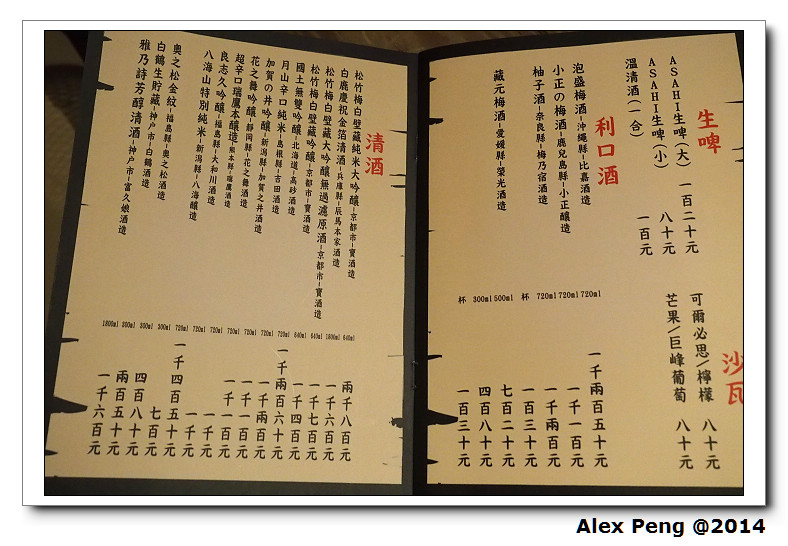 生啤
ASAHI生啤(大) 一百二十元
ASAHI生啤(小) 八十元
溫清酒(一合) 一百元
沙瓦
可爾必思/檸檬 八十元
芒果/巨峰葡萄 八十元
利口酒
泡盛梅酒-沖繩縣-比嘉酒造 720ml 一千兩百五十元
小正の梅酒-鹿兒島縣-小正釀造 720ml 一千一百元
柚子酒-奈良縣-梅乃宿酒造 720ml 一千兩百元
杯 一百三十元
藏元梅酒-愛媛縣-榮光酒造 500ml 七百二十元
300ml 四百八十元
杯 一百三十元
清酒
松竹梅白壁藏純米大吟釀-京都市-寶酒造 640ml 兩千八百元
松竹梅白壁藏大吟釀無過濾原酒-京都市-寶酒造
白鹿慶祝金箔清酒-兵庫縣-辰馬本家酒造 1800ml 一千六百元
松竹梅白壁藏吟釀-京都市-寶酒造 640ml 一千七百元
國士無雙吟釀-北海道-高砂酒造 640ml 一千四百元
月山辛口純米-島根縣-吉田酒造 720ml 一千兩百六十元
加賀の井吟釀-新潟縣-加賀之井酒造 720ml 一千兩百元
花之舞吟釀-靜岡縣-花之舞酒造 720ml 一千一百元
超辛口瑞鷹本釀造-熊本縣-瑞鷹酒造 720ml 一千一百元
良志久吟釀-福島縣-大和川酒造 720ml 一千元
八海山特別純米-新潟縣-八海釀造 720ml 一千元
奧之松金紋-福島縣-奧之松酒造 720ml 一千四百五十元
300ml 七百元
白鶴生貯藏-神戶市-白鶴酒造 300ml 四百八十元
雅乃詩芳醇清酒-神戶市-富久娘酒造 300ml 兩百五十元
1800ml 一千六百元
Alex Peng @2014